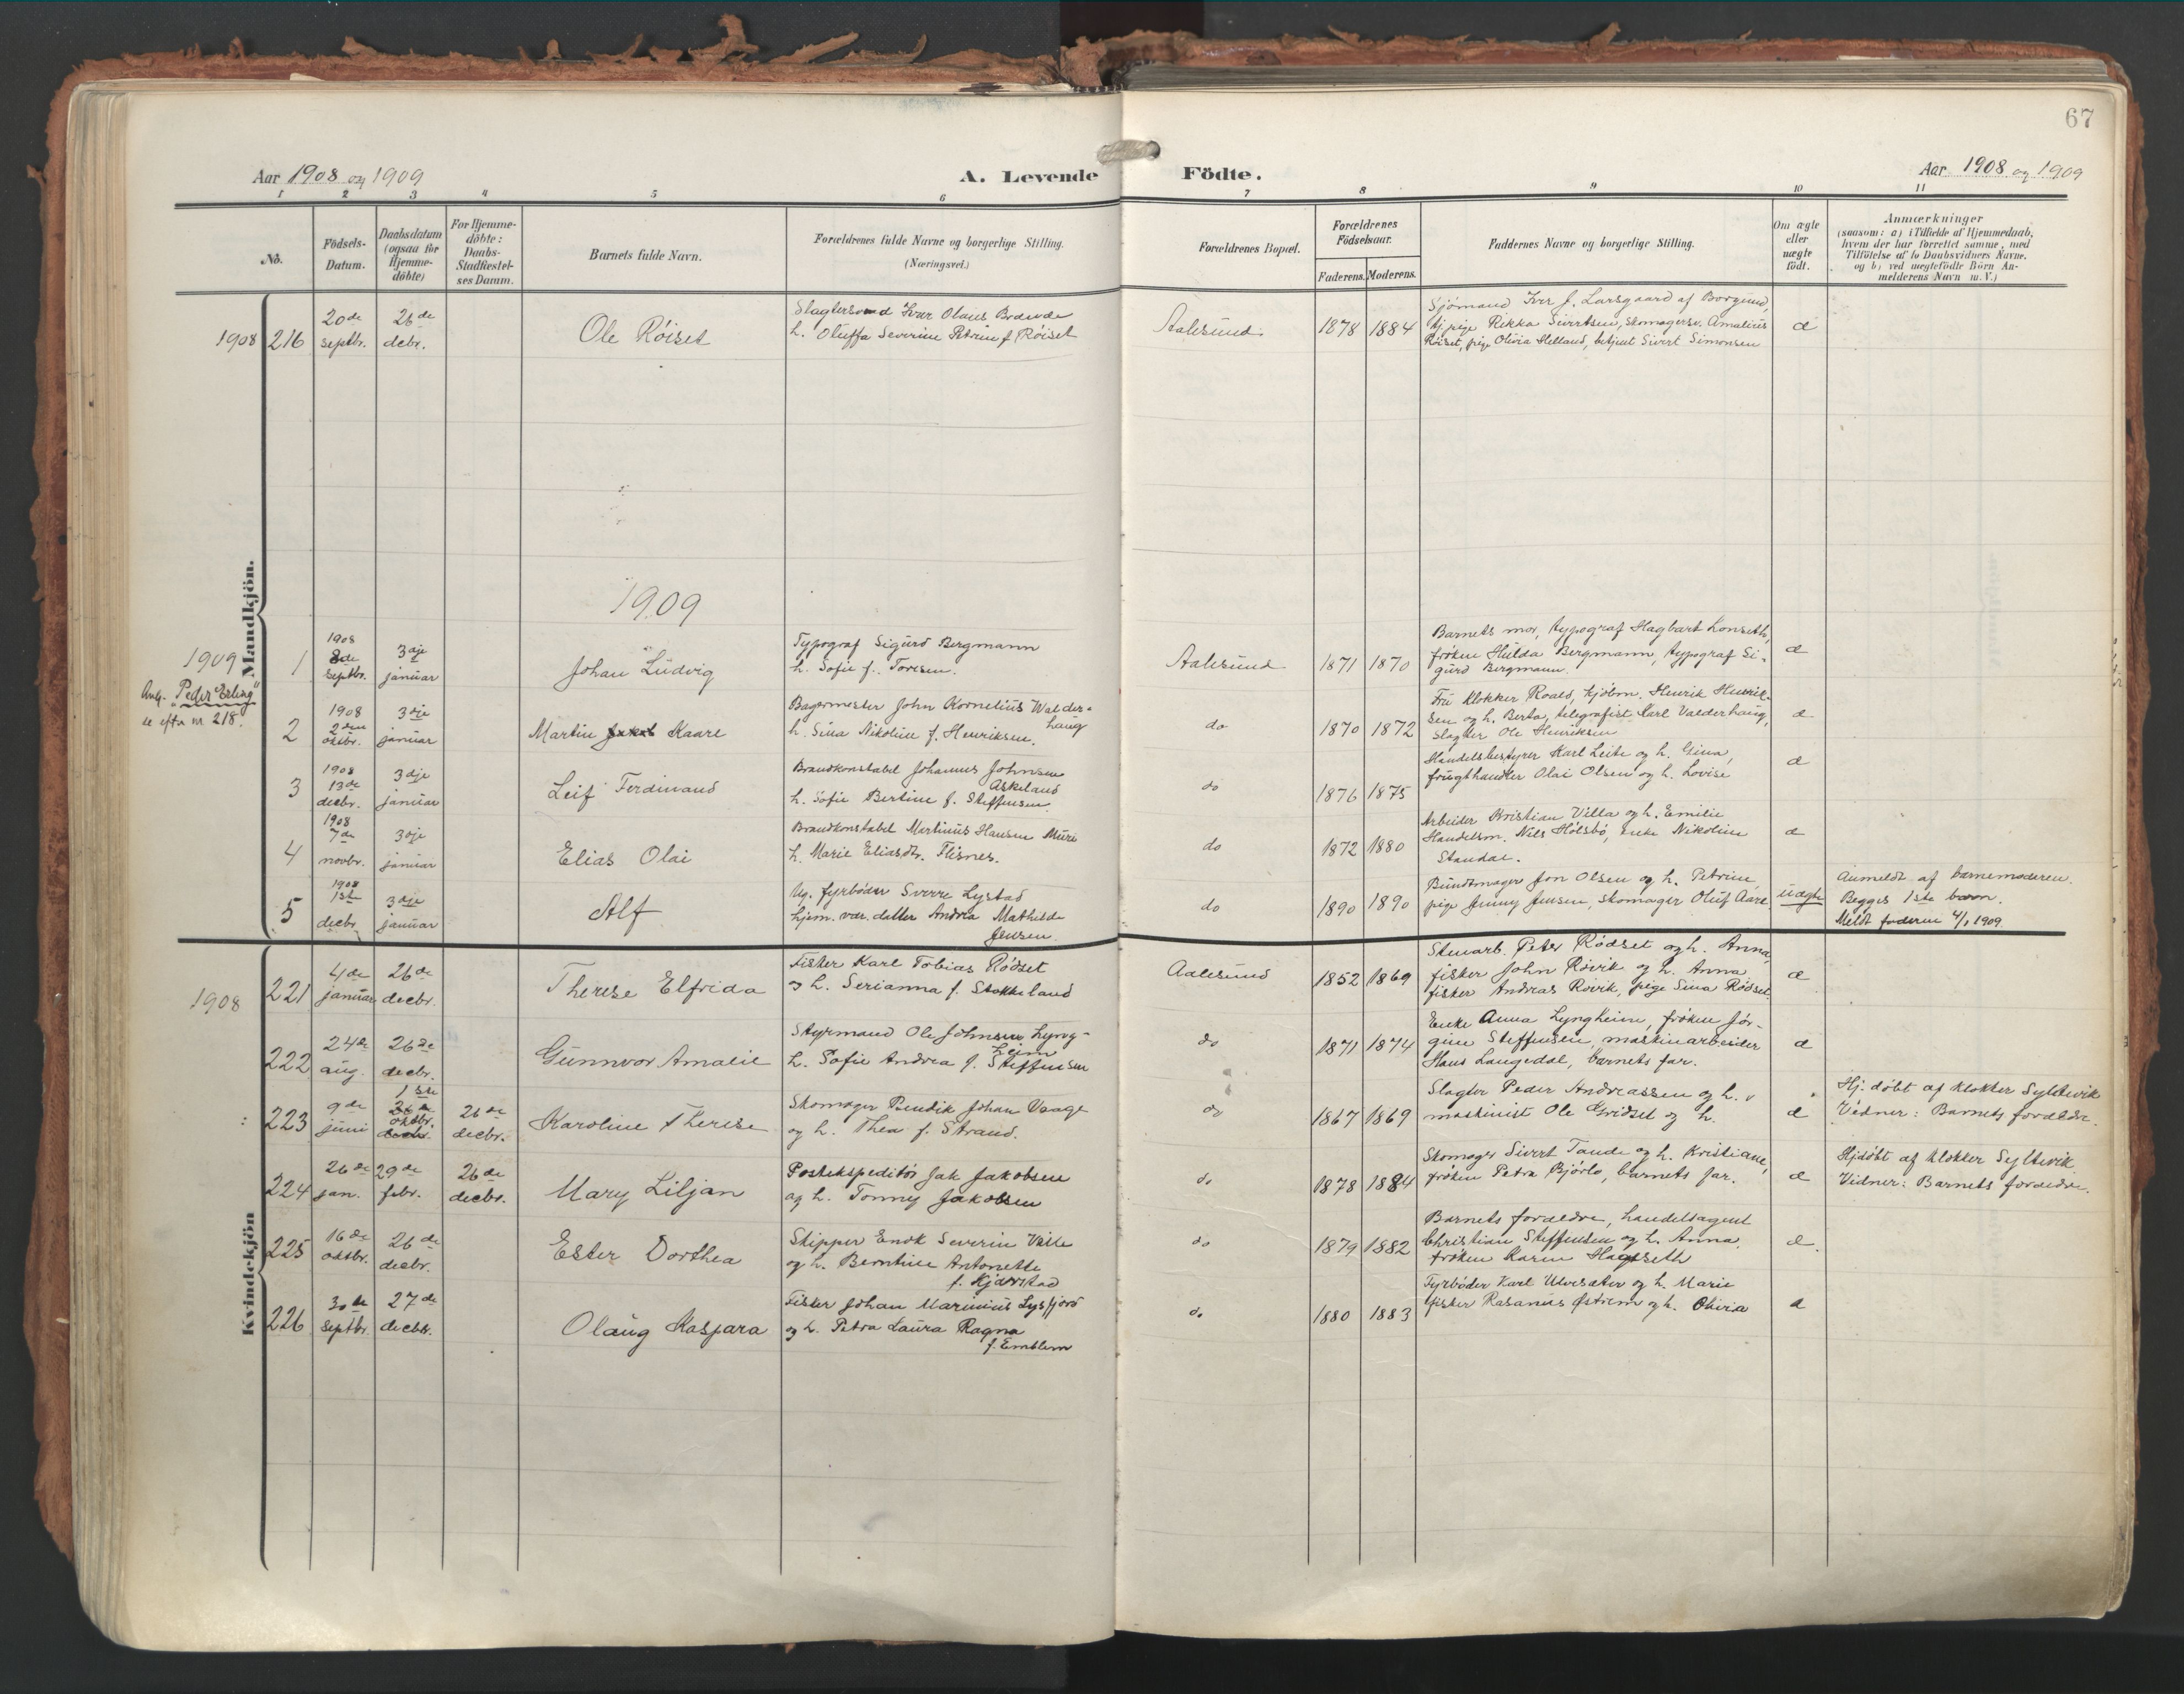 67
Aar 1908 og 1909
A. Levende Födte.
Aar 1908 og 1909
1 2 3 4 5 6 7 8 9 10 11
No.
Födsels-
Datum.
Daabsdatum
(ogsaa for
Hjemme-
döbte)
For Hjemme-
döbte:
Daabs-
Stadfæstel-
ses Datum.
Barnets fulde Navn.
Forældrenes fulde Navne og borgerlige Stilling.
(Næringsvei.)
Forældrenes Bopæl.
Forældrenes
Födselsaar.
Faderens. Moderens.
Faddernes Navne og borgerlige Stilling.
Om ægte
eller
uægte
födt.
Anmærkninger
(saasom: a) i Tilfælde af Hjemmedaab,
hvem der har forrettet samme, med
Tilföielse af to Daabsvidners Navne.
og b) ved uægtefödte Börn An-
melderens Navn m. V.)
Mandkjön.
1908 216
20de septbr.
26de decbr.
Ole Röiset
Slagtersvend Iver Olaus
h. Oluffa Severine Petrine f. Röiset
Aalesund.
1878 1884
Sjömand Iver J. Larsgaard af Borgund,
tj. pige Rikka Sivertsen, skomagersv. Amalius
Röiset, pige Olivia Helland, betjent Sivert Simonsen
æ
1909
1909
Ang. "Peder Erling"
se efter nr. 218.
1
1908 8de septbr.
3dje januar
Johan Ludvig
Typograf Sigurd Bergmann
h. Sofie f. Toresen.
Aalesund
1871 1870
Barnets mor, typograf Hagbart Lonseth,
fröken Hulda Bergmann, typograf Si-
gurd Bergmann.
æ
2
1908 2den oktbr.
3dje januar
Martin Kaare
Bagermester John Kornelius Walder-
haug
h. Sina Nikoline f. Henriksen.
do
1870 1872
Fru Klokker Roald, kjöbm. Henrik Henrik-
sen og h. Berta, telegrafist Karl Valderhaug,
slagter Ole Henriksen
æ
3
1908 13de decbr.
3dje januar
Leif Ferdinand
Brandkonstabel Johannes Johnsen
Askeland
h. Sofie Bertine f. Steffensen.
do
1876 1875
Handelsbestyrer Karl Leite og h. Gina,
frugthandler Olai Olsen og h. Lovise
æ
4
1908 7de novbr.
3dje januar
Elias Olai
Brandkonstabel Martinus Hansen Muri
h. Marie Eliasdtr. Flisnes.
do
1872 1880
Arbeider Kristian Villa og h. Emilie
Handelsm. Nils Holsbö, enke Nikoline
Standal.
æ
5
1908 1ste decbr.
3dje januar
Alf
Ug. fyrböder Sverre Lystad
hjem. vær. datter Andrea Mathilde
Jensen.
do
1890 1890
Buntmager Jon Olsen og h. Petrine,
pige Jenny Jensen, skomager Oluf Aare.
uægte
Anmeldt af barnemoderen.
Begges 1ste barn.
Meldt faderen 4/1 1909
Kvindekjön
1908 221
4de januar
26de decbr.
Therese Elfrida
Fisker Karl Tobias Rödset
og h. Serianna f. Stokkeland
Aalesund
1852 1869
Stenarb. Peter Rödset og h. Anna,
fisker John Rövik og h. Anna
fisker Andreas Rövik, pige Sina Rödset.
æ
222
24de aug.
26de decbr.
Gunnvor Amalie
Styrmand Ole Johnsen Lyng-
heim
h. Sofie Andrea f. Steffensen
do
1871 1874
Enke Anna Lyngheim, fröken Jör-
gine Steffensen, maskinarbeider
Hans Langedal, barnets far.
æ
223
9de juni
1ste oktbr.
26de decbr.
Karoline Therese
Skomager Bendik Johan Vaage
og h. Thea f. Strand.
do
1867 1869
Slagter Peder Andreassen og h.,
maskinist Ole Gridset og h.
æ
Hj. döbt af Klokker Syltevik
Vidner: Barnets forældre.
224
26de jan.
29de febr.
26de decbr.
Mary Liljan
Postekspeditör Jak Jakobsen
og h. Tonny Jakobsen
do
1878 1884
Skomager Sivert Tande og h. Kristiane,
fröken Petra Björlo, barnets far.
æ
Hjdöbt af Klokker Syltevik.
Vidner: Barnets forældre.
225
16de oktbr.
26de decbr.
Ester Dorthea
Skipper Enok Severin
og h. Berntine Antonette
f. Kjærstad
do
1879 1882
Barnets forældre, handelsagent
Christian Steffensen og h. Anna,
fröken Karen Hagseth
æ.
226
30te septbr.
27de decbr.
Olaug Kaspara
Fisker Johan Marinius Lysfjord
og h. Petra Laura Ragna
f. Emblem
do
1880 1883
Fyrböder Karl Ulvesæter og h. Marie
fisker Rasmus Østrem og h. Olivia
æ